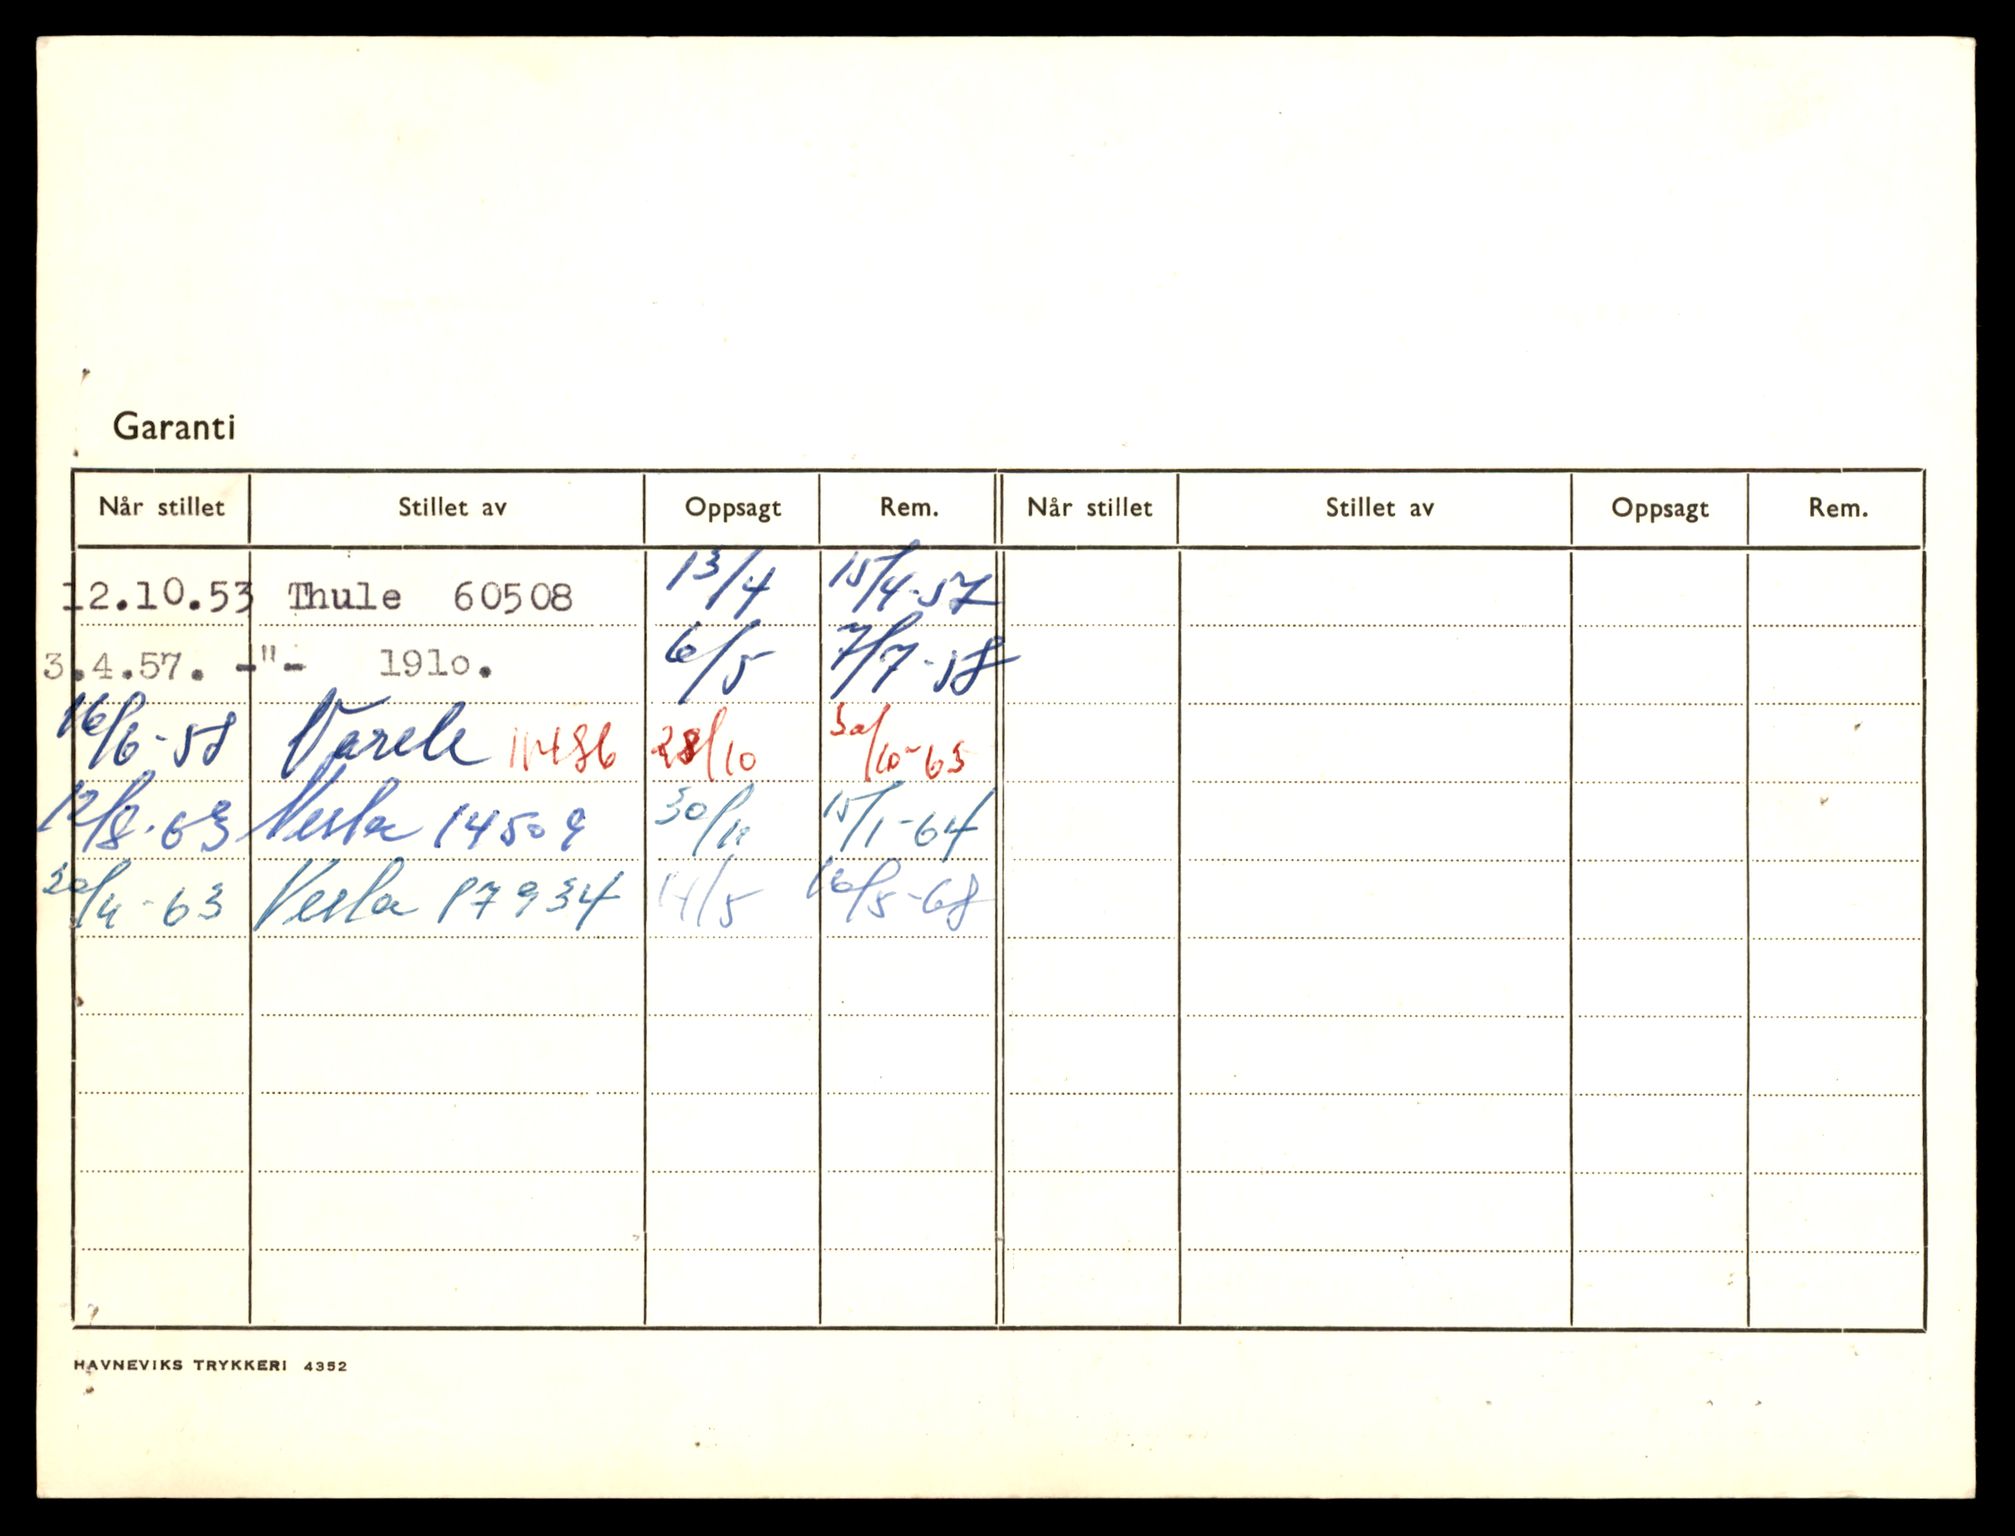 Garanti
Når stillet Stillet av Oppsagt Rem. Når stillet Stillet av Oppsagt Rem.
12.10.53 Thule 60508 13/4 15/4-57
3.4.57. -"- 191o. 6/5 7/7-58
16/6-58 Varele 11486 28/10 30/10-63
12/8-63 Vesta 14509 30/11 15/1-64
30/11-63 Vesta 17934 14/5 16/5-68
HAVNEVIKS TRYKKERI 4352